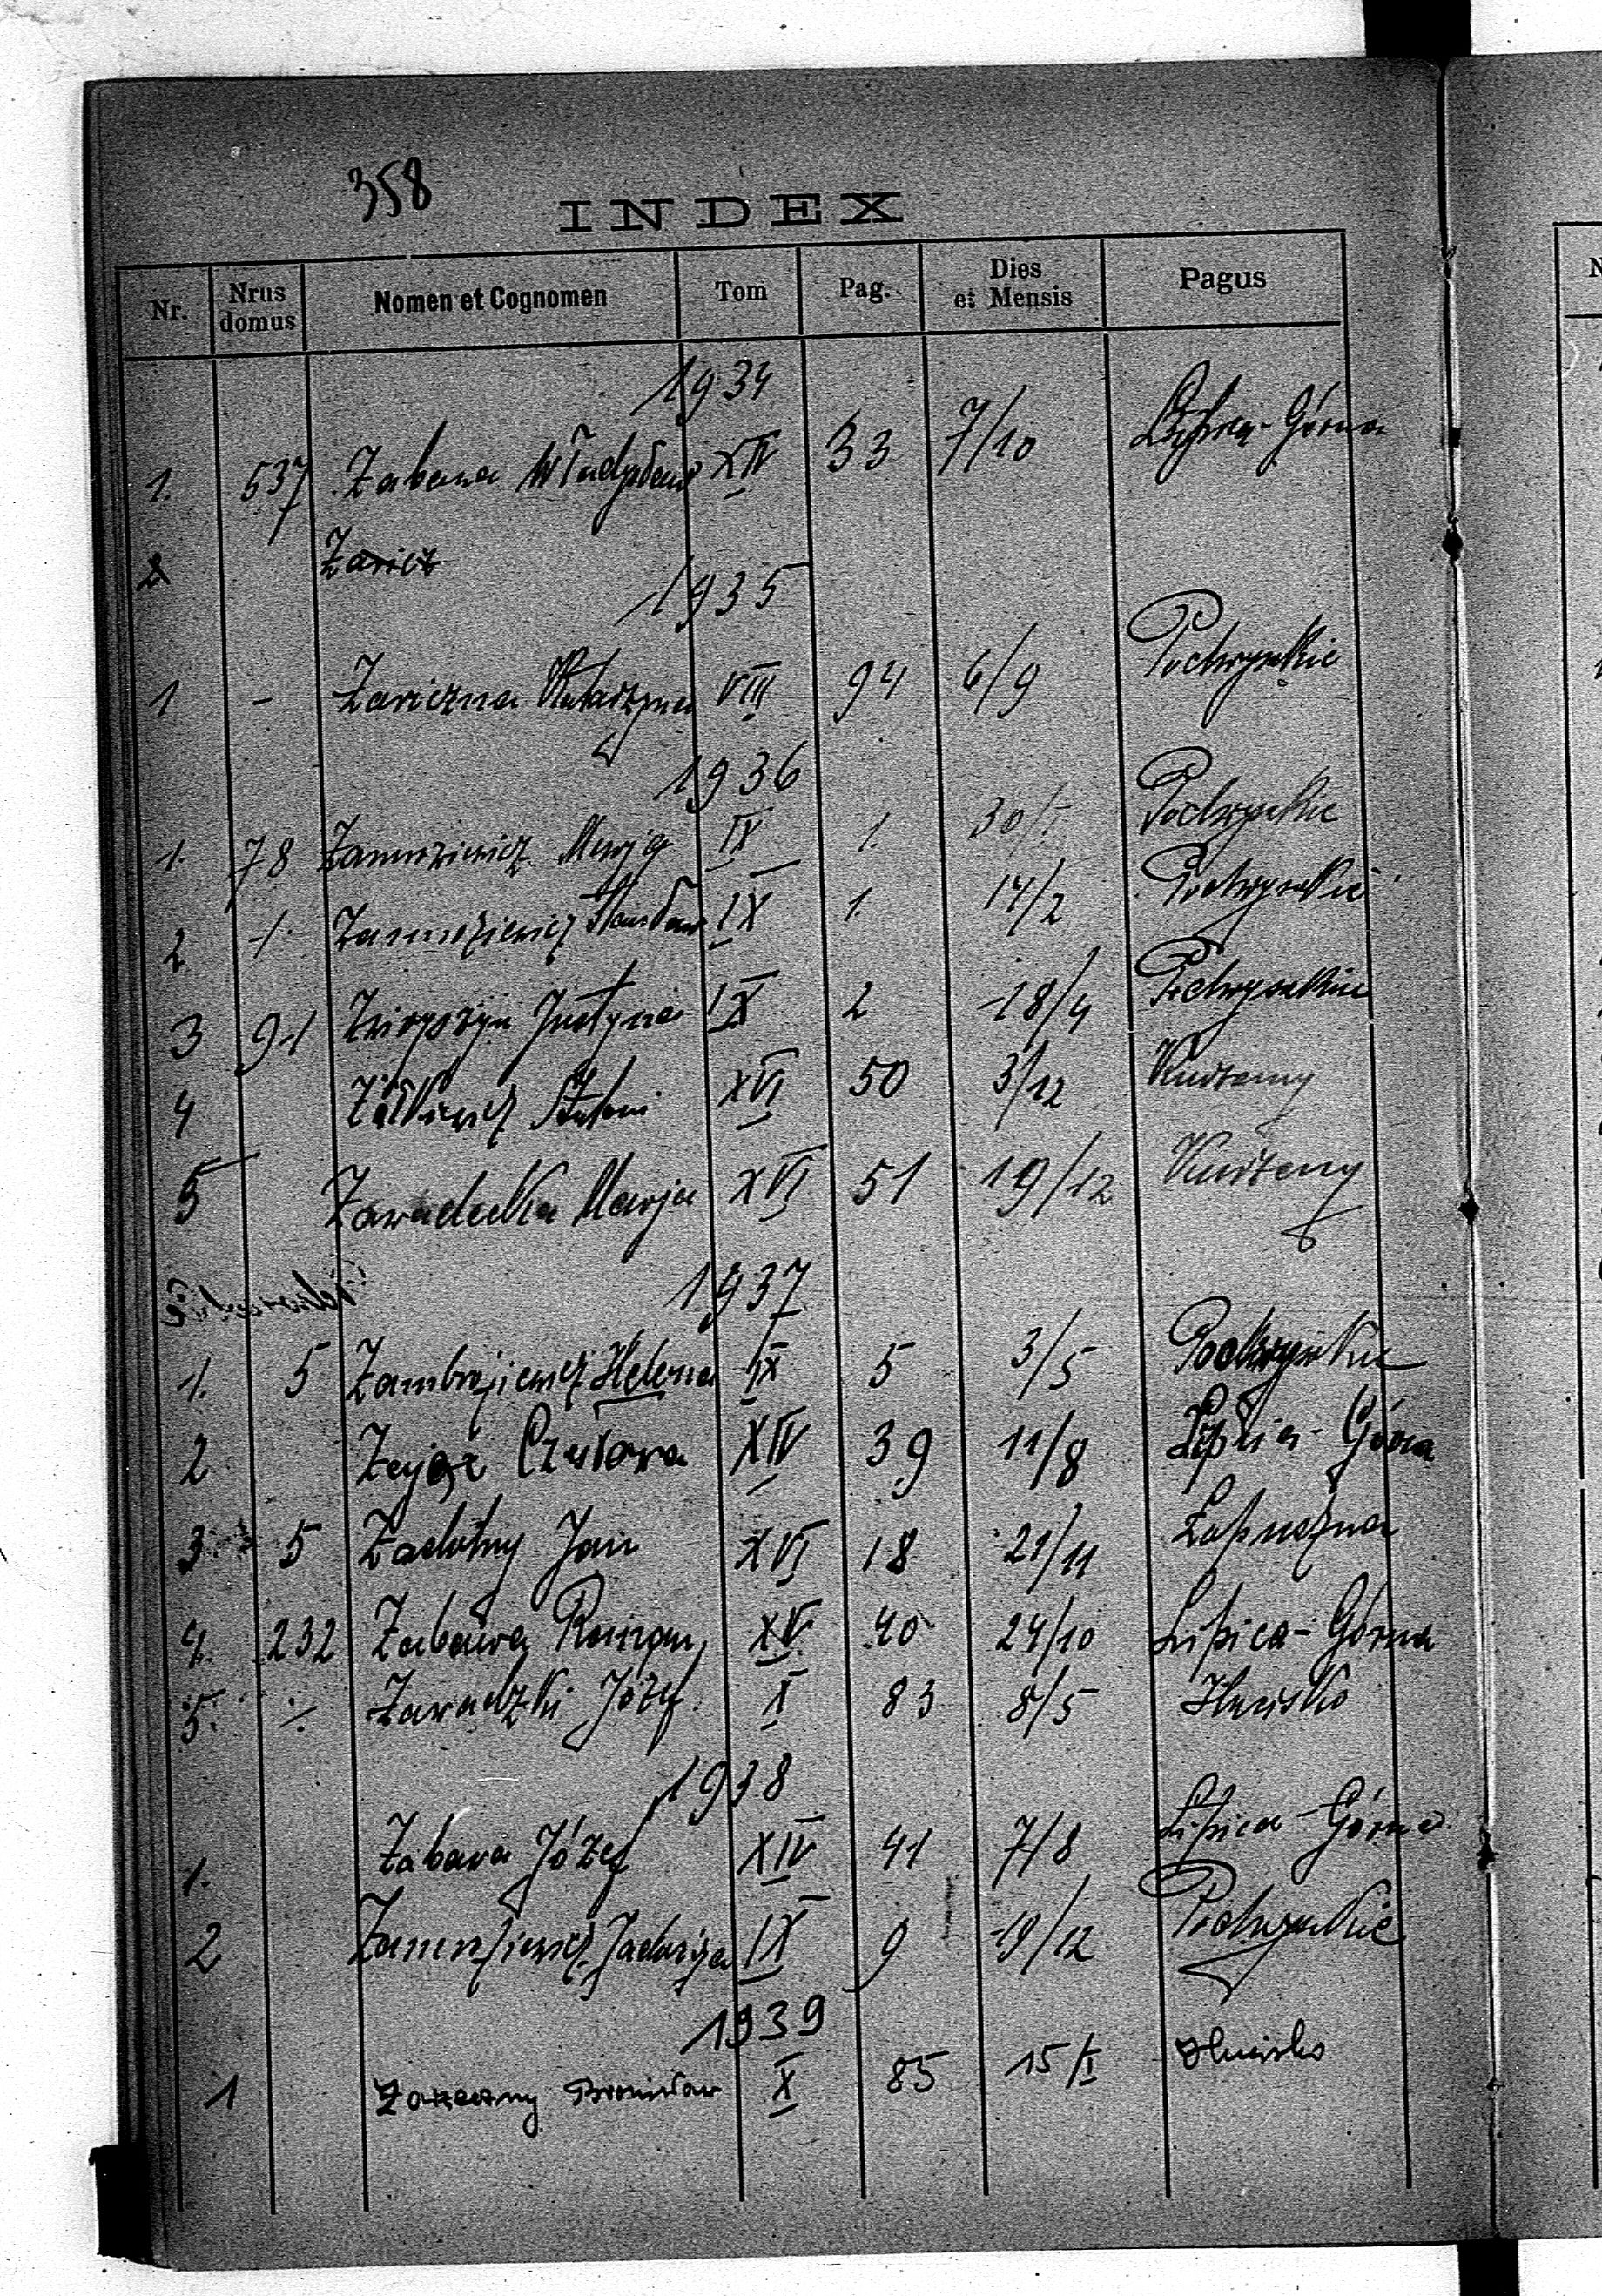 358
INDEX
Nr. Nrus domus Nomen et Cognomen Tom Pag. Dies et Mensis Pagus
1934
1. 537 Zabawa Władysław XIV 33 7/10 Lipica-Górna
2 Zaricz
1935
1 - Zariczna Katarzyna VIII 94 6/9 Podwysokie
1936
1. 78 Marja IX 1. 30/I Podwysokie
2 -/- Stanisław IX 1. 14/2 Podwysokie
3 91 Justyna IX 2 18/4 Podwysokie
4 Żółkiewicz XVI 50 3/12
5 Zawadecka Marja XVI 51 19/12
1937
1. 5 Helena IX 5 3/5 Podwysokie
2 Zając Czesława XIV 39 11/8 Lipica-Górna
3 5 Jan XVI 18 21/11
4. 232 Zabawa Roman XV 40 24/10 Lipica-Górna
5. -/- Zawadzki Józef X 83 8/5
1938
1. Zabawa Józef XIV 41 7/8 Lipica-Górna
2 Jadwiga IX 9 19/12 Podwysokie
1939
1 Zarzeczny Bronisław X 85 15/I